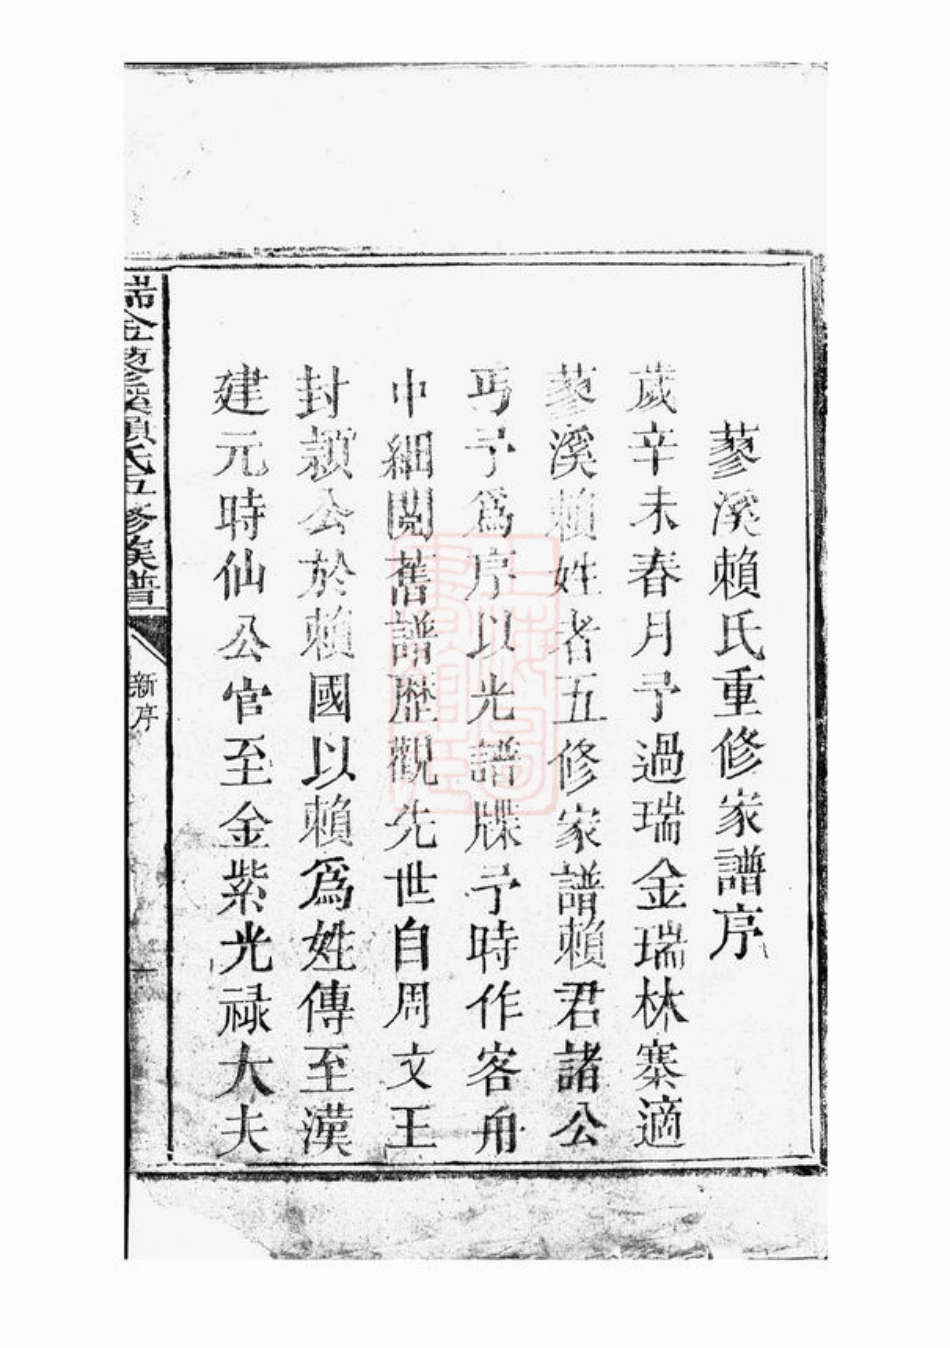 蓼溪賴氏重修家譜序
歲辛未春月予過瑞金瑞林寨適
蓼溪賴姓者五修家譜賴君諸公
丐予爲序以光譜牒予時作客舟
中細閱舊譜歷觀先世自周文王
封穎公於賴國以賴爲姓傳至漢
建元時仙公官至金紫光祿大夫
瑞金蓼溪賴氏五修族譜
新序
一